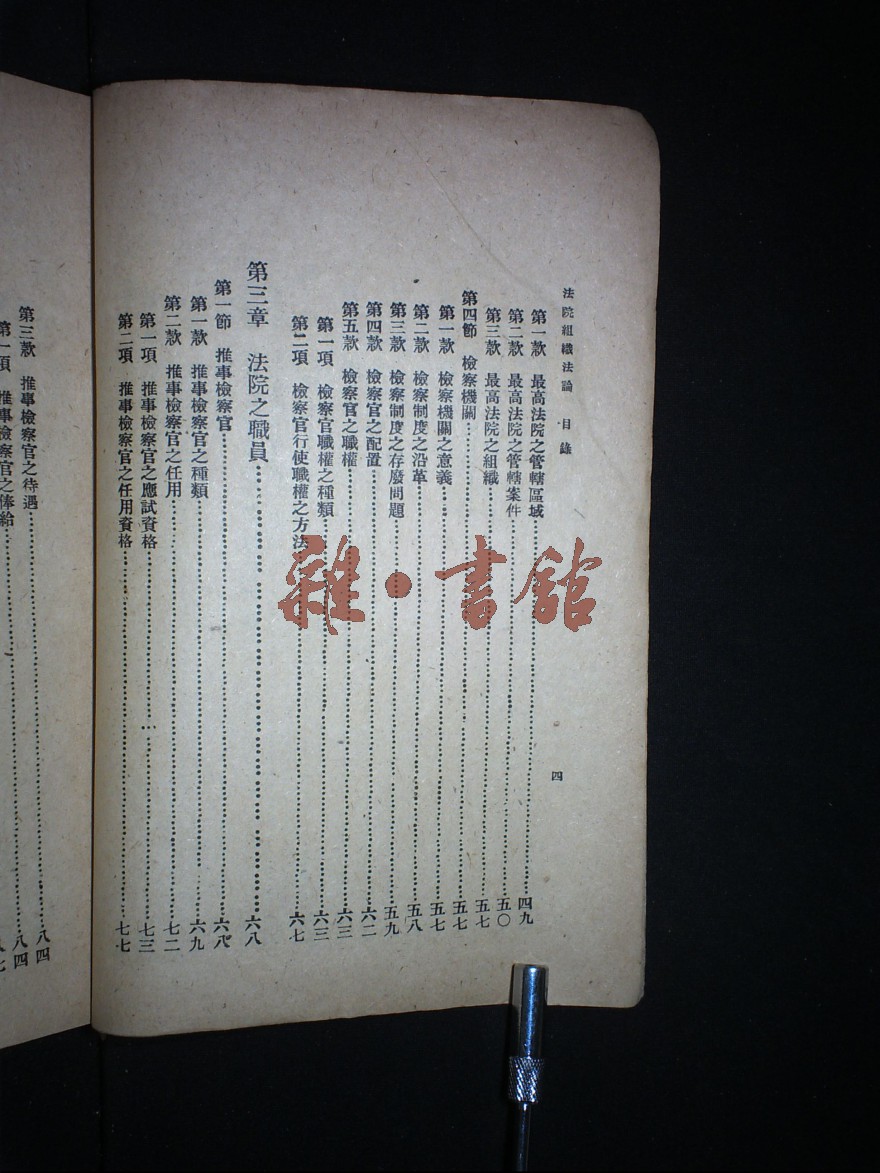 法院組織法論　目錄
四
第一款　最高法院之管轄區域……四九
第二款　最高法院之管轄案件……五〇
第三款　最高法院之組織……五七
第四節　檢察機關……五七
第一款　檢察機關之意義……五七
第二款　檢察制度之沿革……五八
第三款　檢察制度之存廢問題……五九
第四款　檢察官之配置……六二
第五款　檢察官之職權……六三
第一項　檢察官職權之種類……六三
第二項　檢察官行使職權之方法……六七
第三章　法院之職員……六八
第一節　推事檢察官……六八
第一款　推事檢察官之種類……六九
第二款　推事檢察官之任用……七二
第一項　推事檢察官之應試資格……七三
第二項　推事檢察官之任用資格……七七
第三款　推事檢察官之待遇……八四
第一項　推事檢察官之俸給……八四
雜·書館